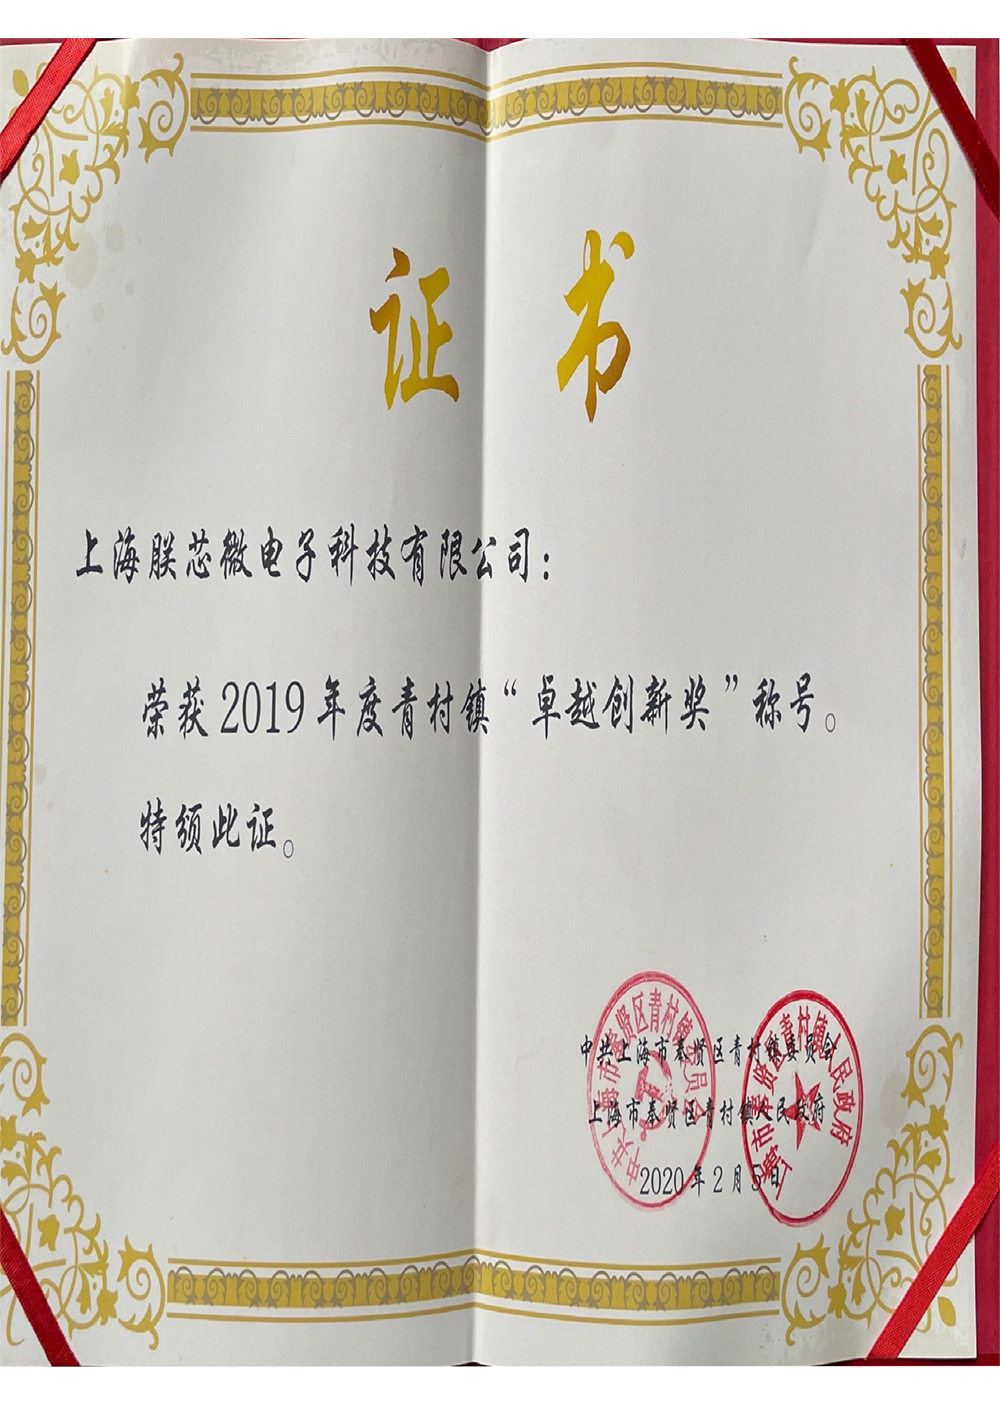 证 书
上海朕芯微电子科技有限公司：
荣获2019年度青村镇“卓越创新奖”称号。
特颁此证。
中共上海市奉贤区青村镇委员会
上海市奉贤区青村镇人民政府
2020年2月5日
中共上海市奉贤区青村镇委员会
上海市奉贤区青村镇人民政府